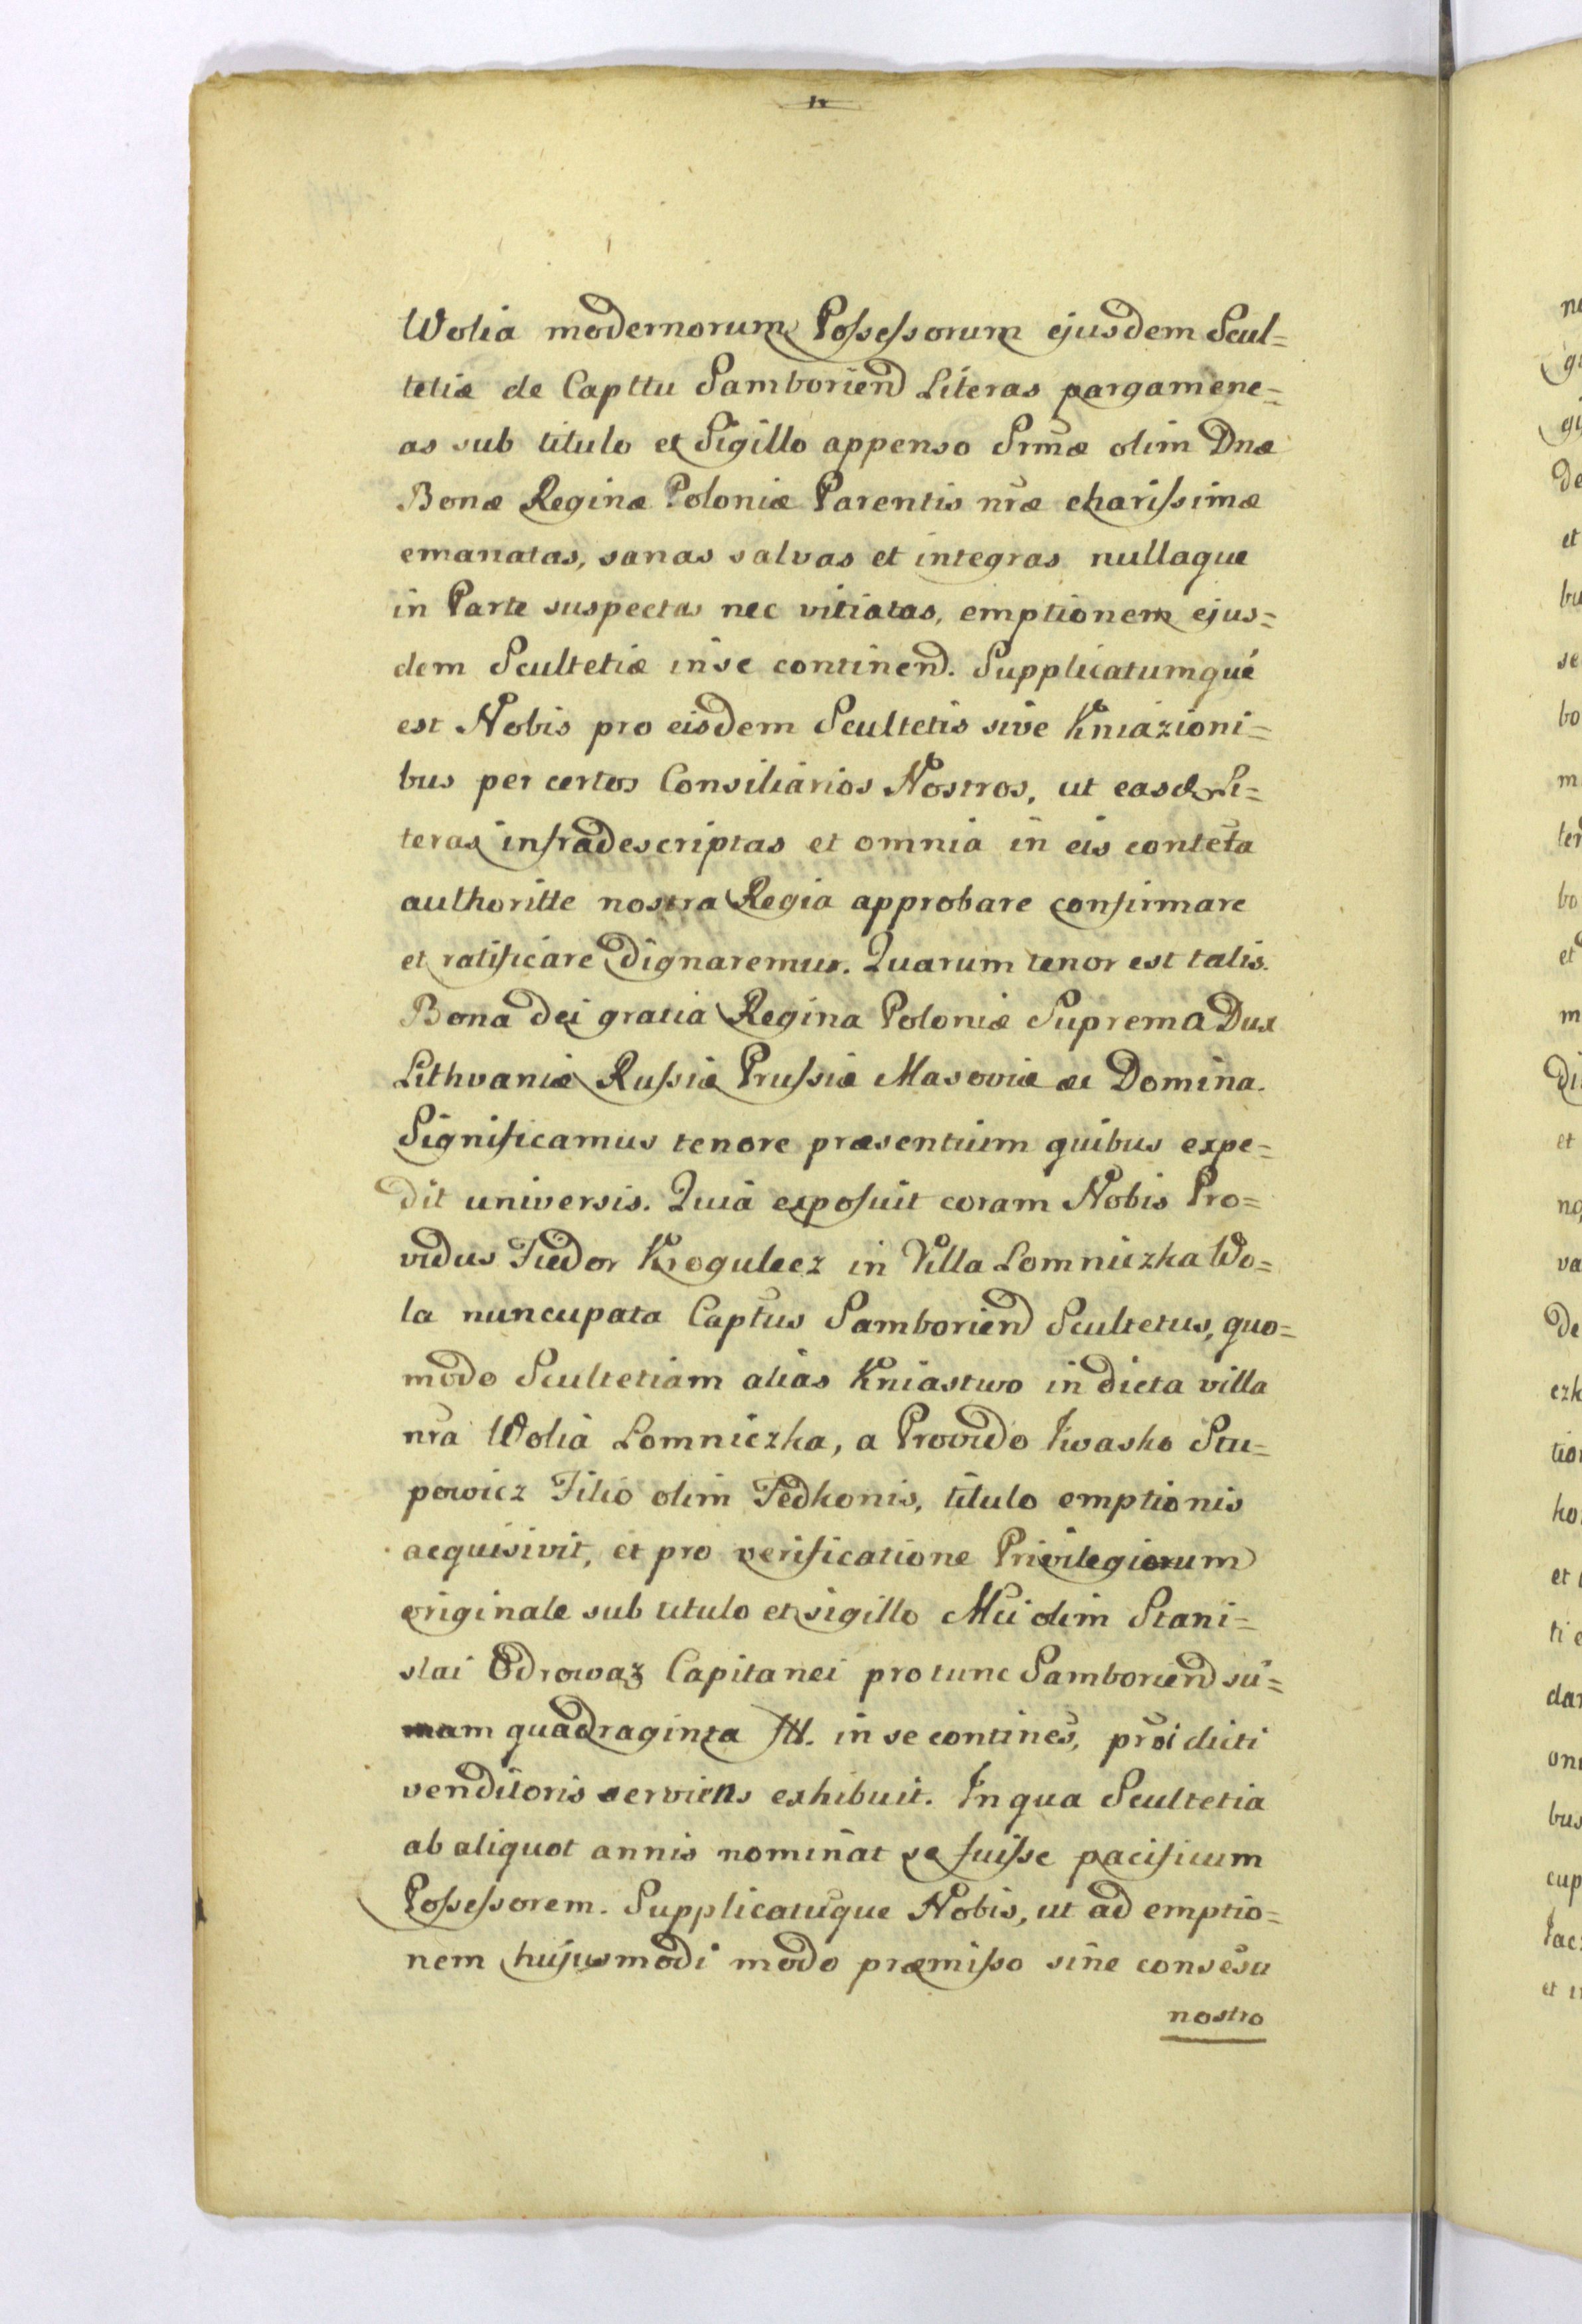 Wolia modernorum Possessorum ejusdem Scul=
tetiæ de Capttu Samborien̄d Literas pargamene=
as sub titulo et Sigillo appenso Srmæ olim Dnæ
Bonæ Reginæ Poloniæ Parentis nr̄æ charissimæ
emanatas, sanas salvas et integras nullaque
in Parte suspectas nec vitiatas, emptionem ejus=
dem Scultetiæ in se continen̄d. Supplicatumqué
est Nobis pro eisdem Scultetis sive Kniazioni=
bus per certos Consiliarios Nostros, ut easd Li=
teras infradescriptas et omnia in eis contēta
authoritte nostra Regia approbare confirmare
et ratificare dignaremur. Quarum tenor est talis.
Bona dei gratia Regina Poloniæ Suprema Dux
Lithvaniæ Russiæ Prussiæ Masoviæ æc Domina.
Significamus tenore præsentium quibus expe=
dit universis. Quia exposuit coram Nobis Pro=
vidus Fiedor Kroguleez in Villa Lomniczka Wo=
la nuncupata Captūs Samborien̄d Scultetus, quo=
modo Scultetiam alias Kniastwo in dicta villa
nr̄a Wolia Lomniczka, a Provido Iwasko Stu=
powicz Filio olim Fedkonis, titulo emptionis
acquisivit, et pro verificatione Privilegiorum
originale sub titulo et sigillo Mci olim Stani=
slai Odrowaz Capitanei pro tunc Samborien̄d sū=
mam quadraginta fll. in se continēs, prōi dicti
venditoris serviens exhibuit. In qua Scultetia
ab aliquot annis nomin̄at se fuisse pacificum
Possessorem. Supplicatūque Nobis, ut ad emptio=
nem hujusmodi modo præmisso sine consēsu
nostro